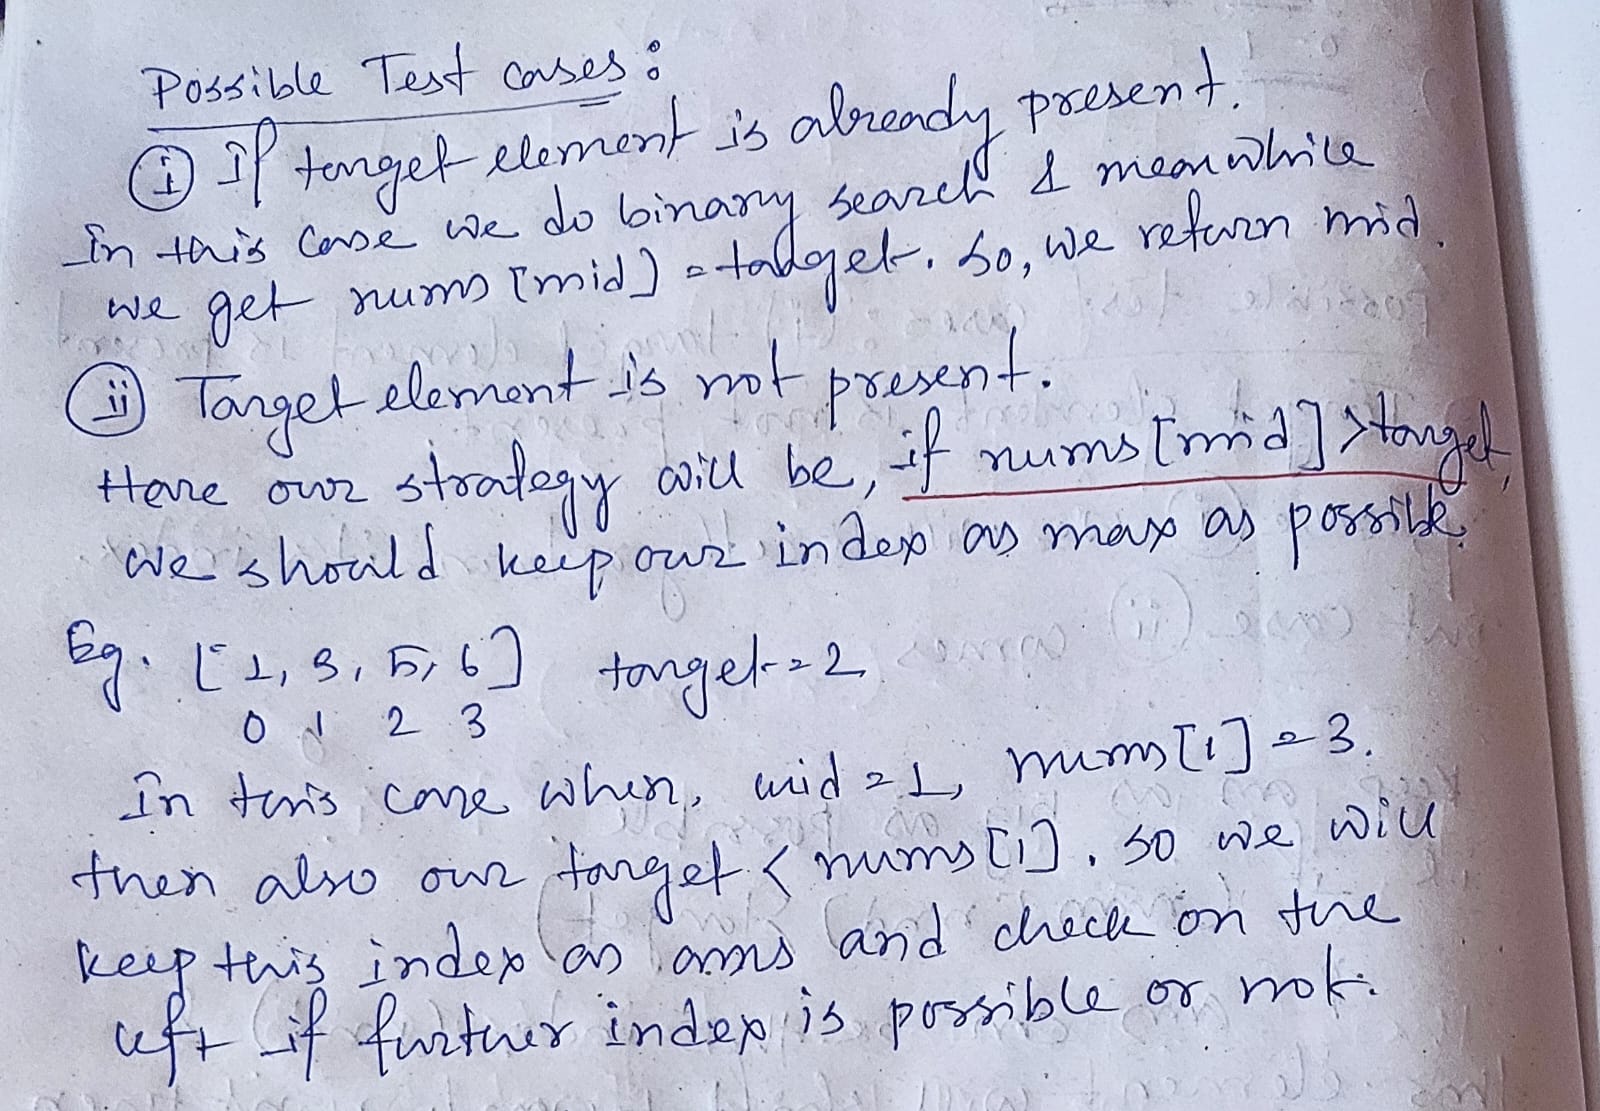 Possible Test cases:
(i) If target element is already present.
In this case we do binary search & meanwhile
we get nums [mid] = target. So, we return mid.
(ii) Target element is not present.
Here our strategy will be, if nums [mid] > target,
we should keep our index as max as possible.
Eg. [1, 3, 5, 6] target = 2
0 1 2 3
In this case when, mid = 1, nums [1] = 3.
then also our target < nums [1]. so we will
keep this index as ans and check on the
left if further index is possible or not.